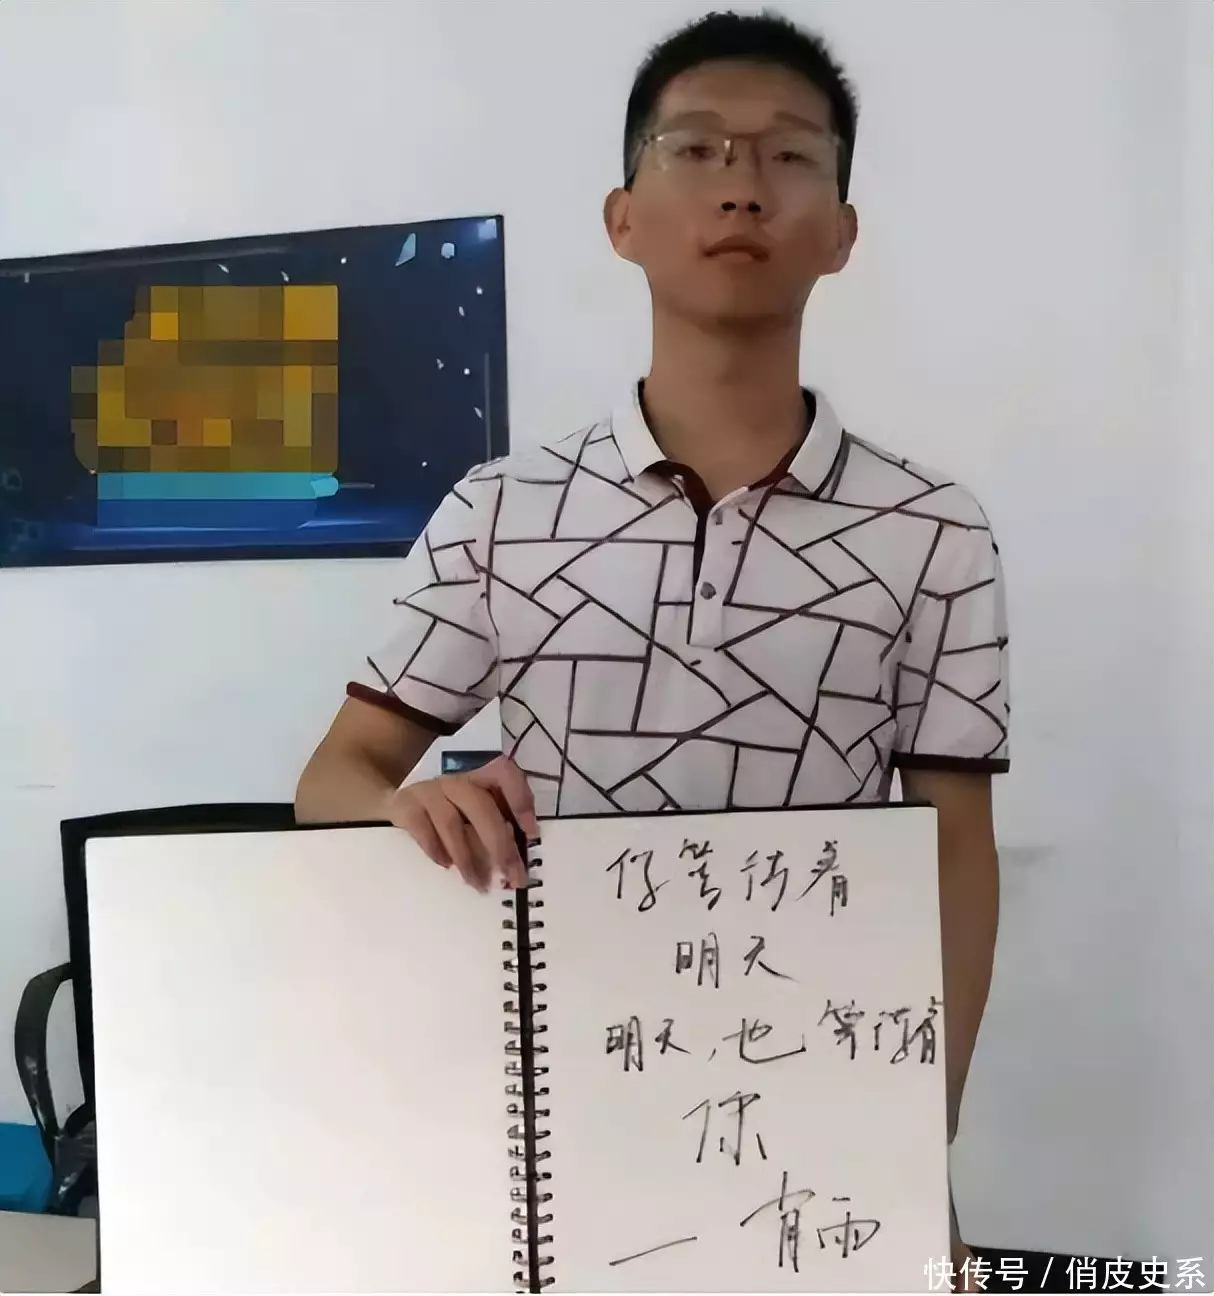 你等待着
明天
明天,也等待着
你
— 肖雨
快传号 / 俏皮史系